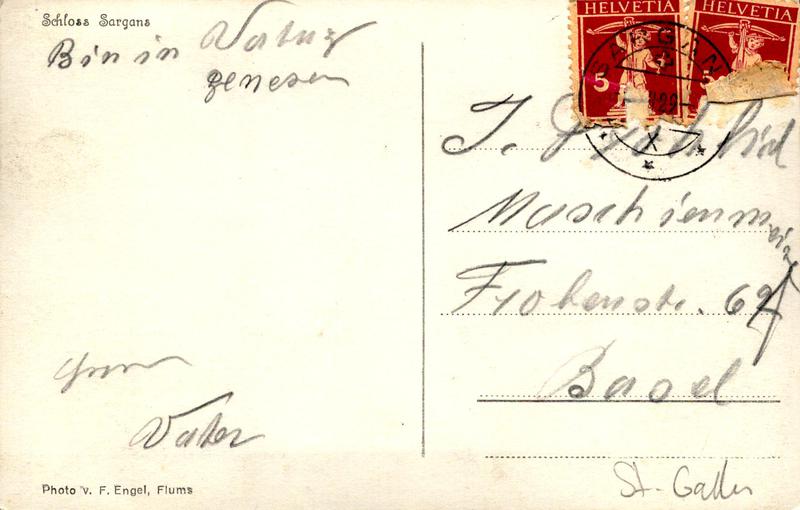 Schloss Sargans
Bin in Vatuz
genesen
Vater
Photo v. F. Engel, Flums
HELVETIA HELVETIA
5
SARGANS
X
J.
Frobenstr. 62
Basel
St. Gallen